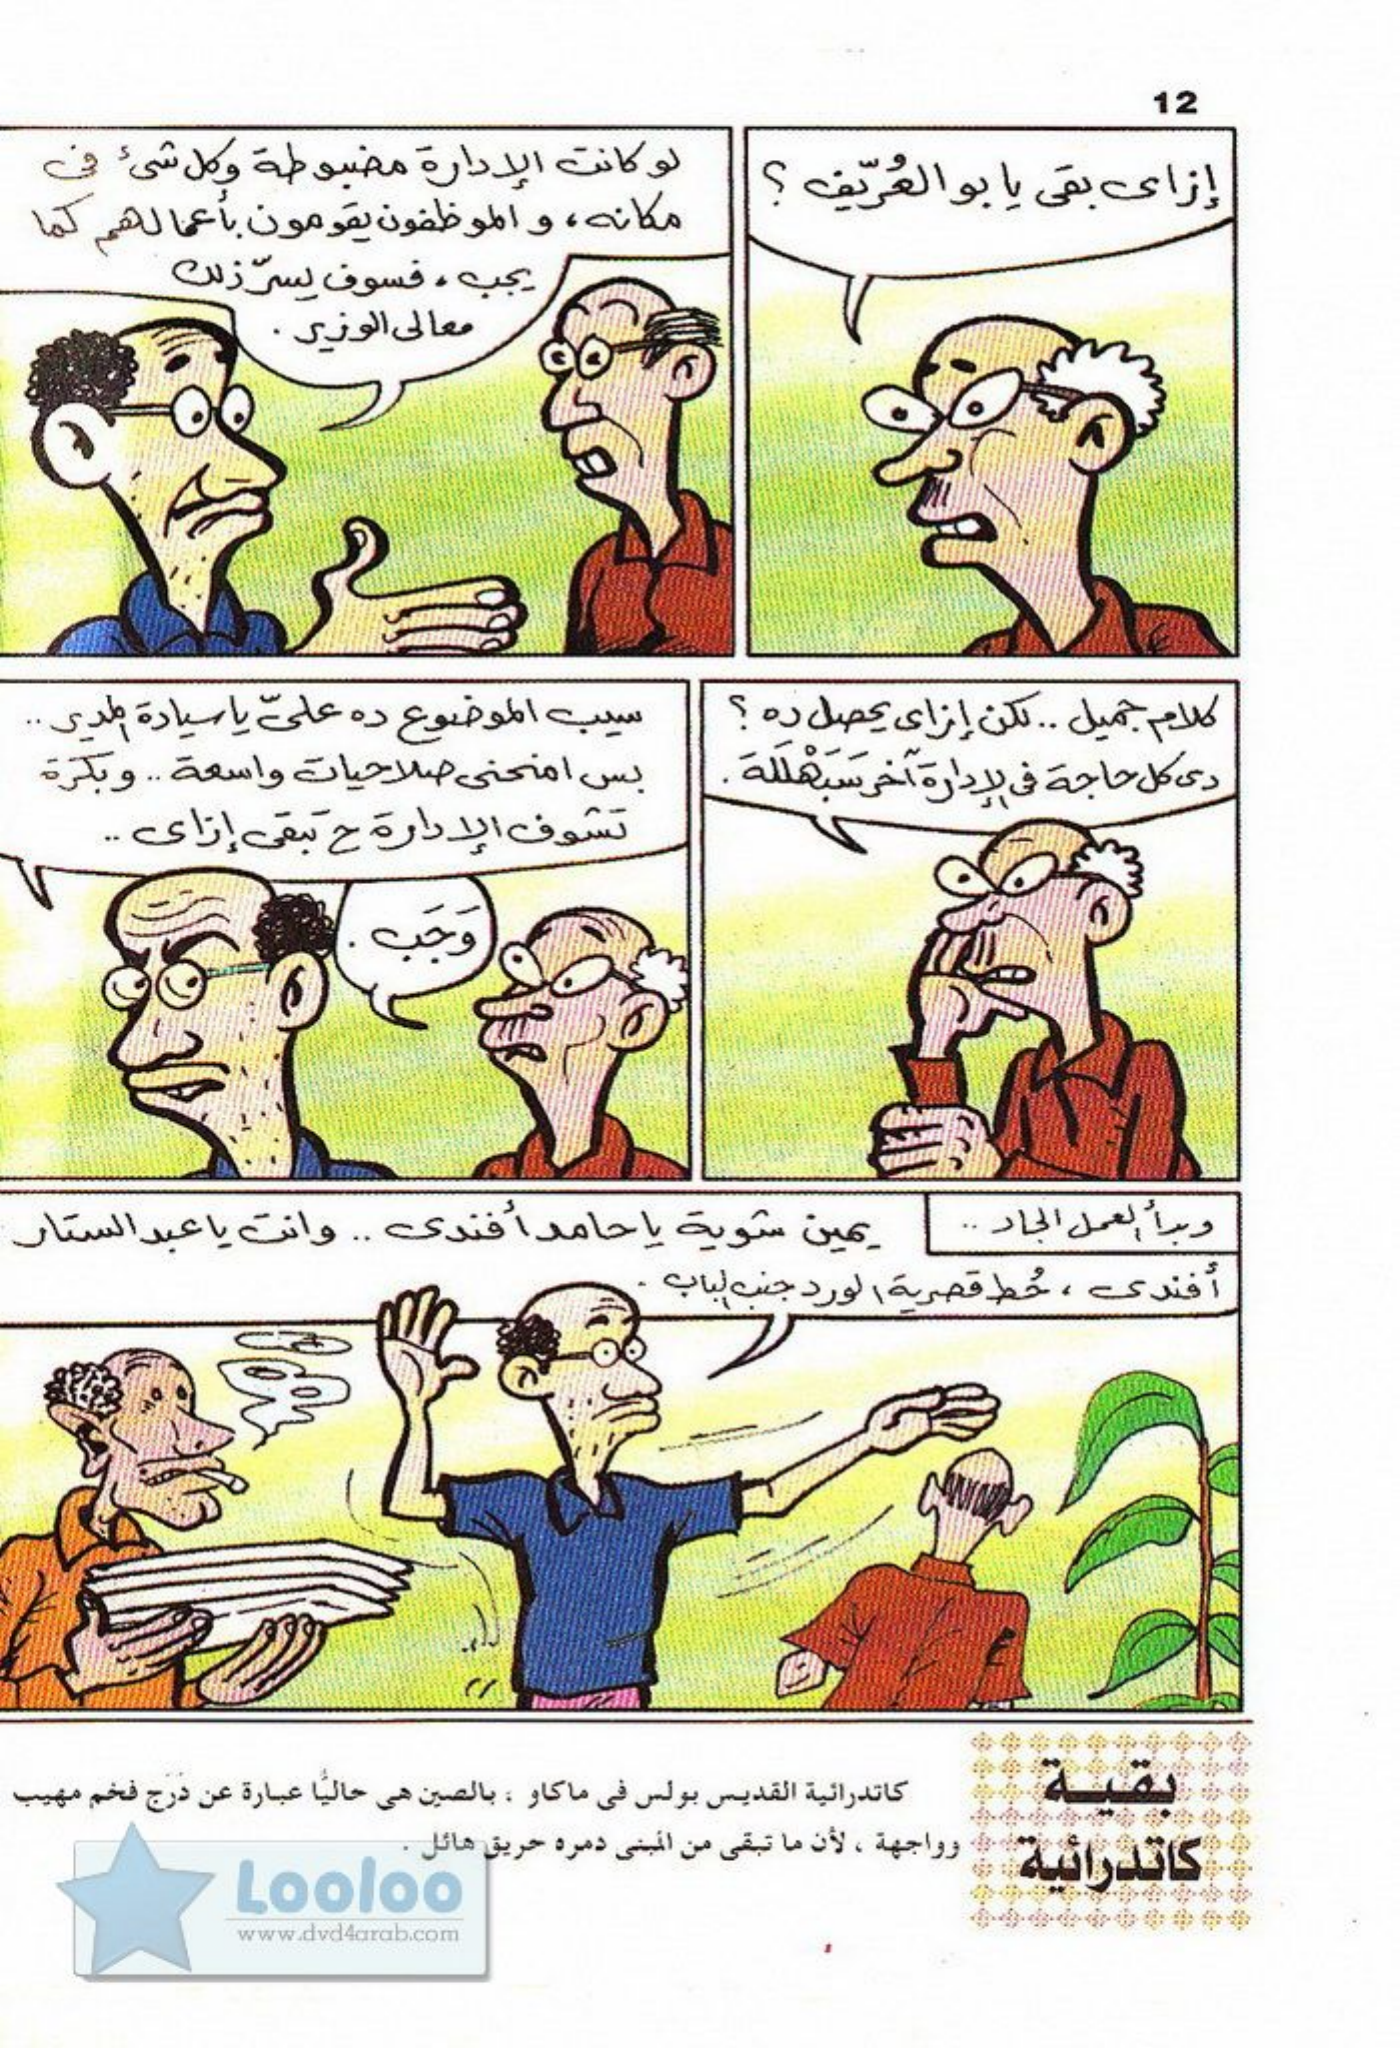 12
إزاى بقى يا بو العُرّيف ؟
لو كانت الإدارة مضبوطة وكل شئ فى
مكانه ، و الموظفون يقومون بأعمالهم كما
يجب ، فسوف يسرّ ذلك
معالى الوزير .
كلام جميل .. لكن إزاى يحصل ده ؟
دى كل حاجة فى الإدارة آخر سَبَهْلَلَة .
سيب الموضوع ده علىّ يا سيادة المدير ..
بس امنحنى صلاحيات واسعة .. وبكرَة
تشوف الإدارة ح تبقى إزاى ..
وَجَب .
وبدأ العمل الجاد ..
يمين شوية يا حامد أفندى .. وانت يا عبد الستار
أفندى ، حُط قصرية الورد جنب الباب .
بقيــة
كاتدرائية
كاتدرائية القديس بولس فى ماكاو ، بالصين هى حاليًا عبارة عن دَرَج فخم مهيب
وواجهة ، لأن ما تبقى من المبنى دمره حريق هائل .
Looloo
www.dvd4arab.com